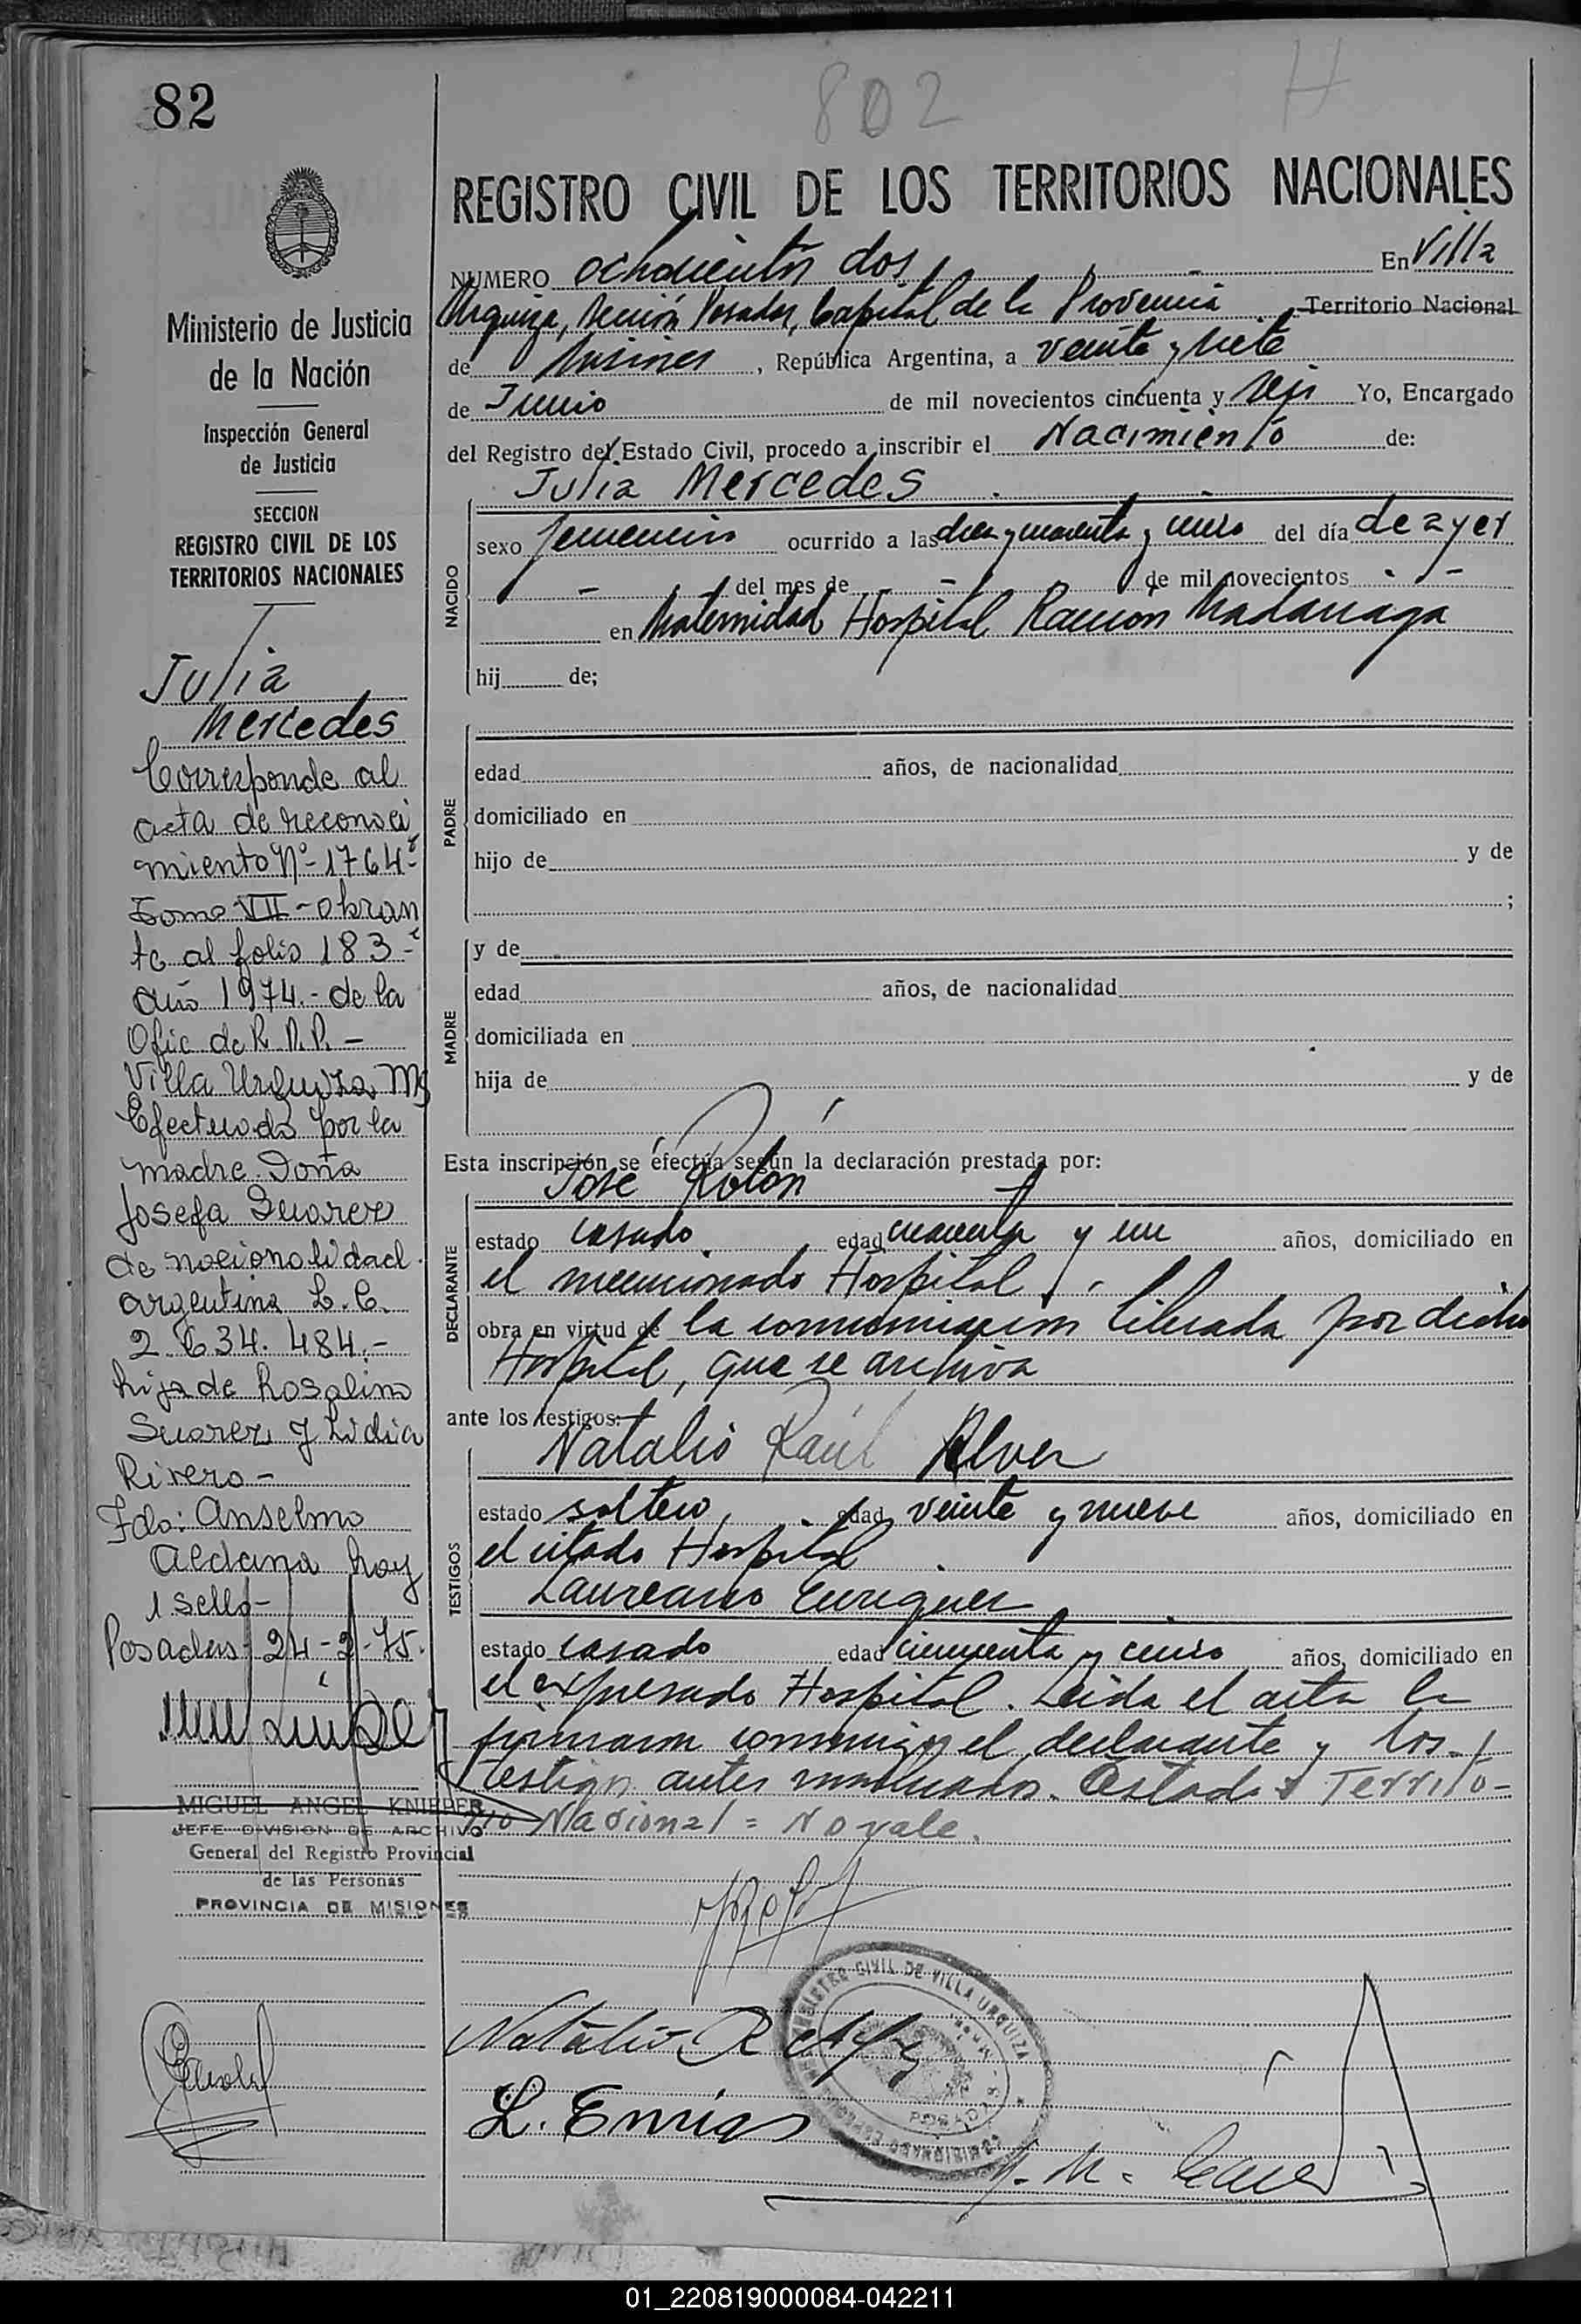 82
802
H
REGISTRO CIVIL DE LOS TERRITORIOS NACIONALES
NUMERO ochocientos dos En Villa
Urquiza, Sección Posadas, Capital de la Provincia Territorio Nacional
de Misiones, República Argentina, a veinte y siete
de Junio de mil novecientos cincuenta y seis Yo, Encargado
del Registro del Estado Civil, procedo a inscribir el Nacimiento de:
Julia Mercedes
NACIDO
sexo femenino ocurrido a las diez y cuarenta y cinco del día de ayer
- del mes de - de mil novecientos -
en Maternidad Hospital Ramón Madariaga
hij de;
PADRE
edad años, de nacionalidad
domiciliado en
hijo de y de
;
MADRE
y de
edad años, de nacionalidad
domiciliada en
hija de y de
Esta inscripción se efectúa según la declaración prestada por:
José Rolón
DECLARANTE
estado casado edad cuarenta y un años, domiciliado en
el mencionado Hospital
obra en virtud de la comunicación librada por dicho
Hospital, que se archiva
ante los testigos:
Natalio Raúl Alvez
TESTIGOS
estado soltero, edad veinte y nueve años, domiciliado en
el citado Hospital
Laureano Enriquez
estado casado edad cincuenta y cinco años, domiciliado en
el expresado Hospital. Leida el acta la
firmaron conmigo el declarante y los
testigos antes nombrados. Testado: Territo-
rio Nacional = No vale.
Natalio R
L. Enriq
REGISTRO CIVIL DE VILLA URQUIZA
POSADAS
Ministerio de Justicia
de la Nación
Inspección General
de Justicia
SECCION
REGISTRO CIVIL DE LOS
TERRITORIOS NACIONALES
Julia
Mercedes
Corresponde al
acta de reconoci
miento Nº 1764-
Tomo VII - obran
te al folio 183-
año 1974.- de la
Ofic de R. P. P. -
Villa Urquiza Ms
Efectuado por la
madre Doña
Josefa Suarez
de nacionalidad
argentina L. C.
2.634.484.-
hija de Rosalino
Suarez y Lidia
Rivero -
Fdo: Anselmo
Aldana hay
1 sello -
Posadas 24-2-75.
MIGUEL ANGEL KNIEPER
JEFE DIVISION DE ARCHIVO
General del Registro Provincial
de las Personas
PROVINCIA DE MISIONES
01_220819000084-042211